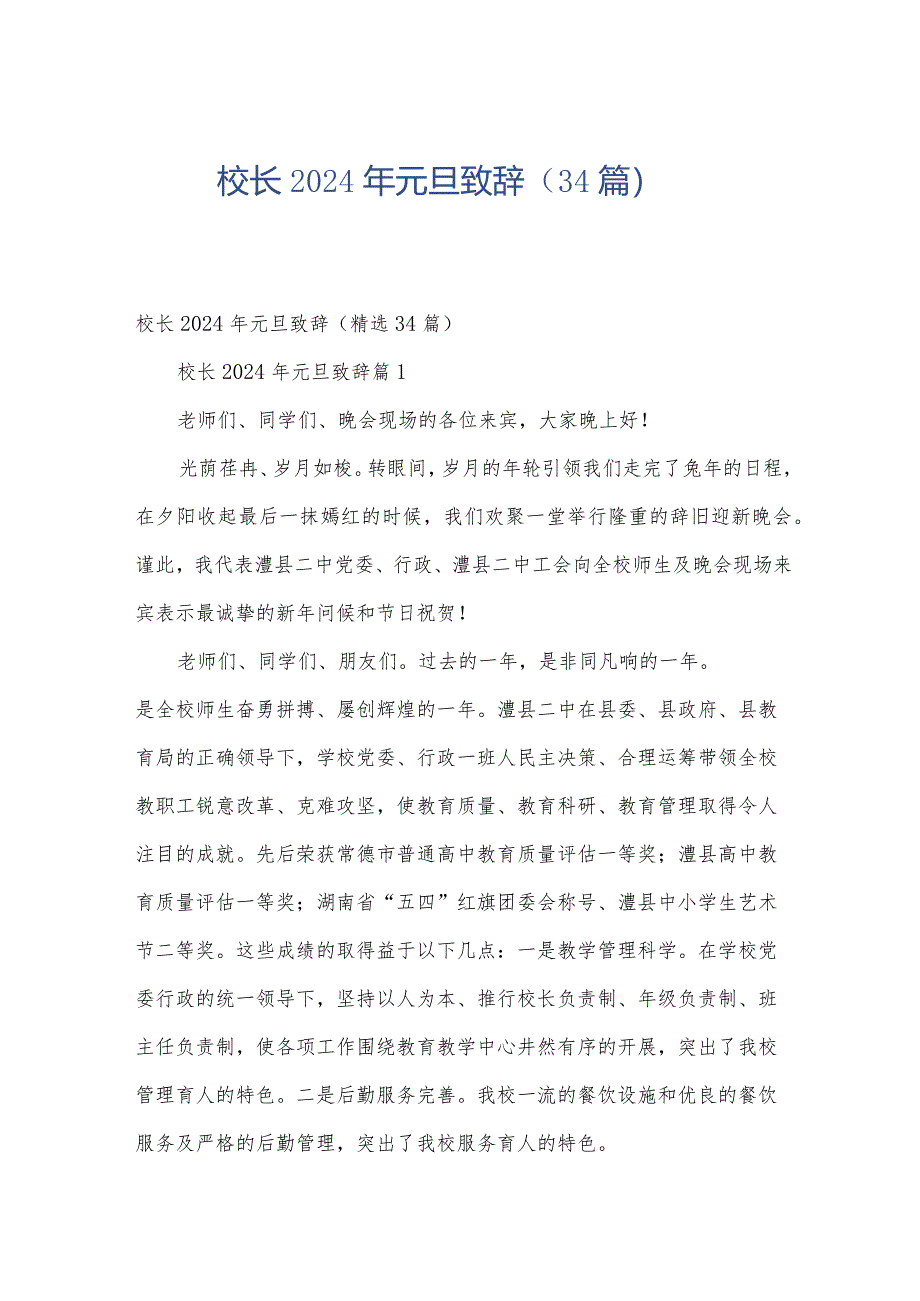 校长2024年元旦致辞（34篇）
校长2024年元旦致辞（精选34篇）
校长2024年元旦致辞篇1
老师们、同学们、晚会现场的各位来宾，大家晚上好！
光荫荏冉、岁月如梭。转眼间，岁月的年轮引领我们走完了兔年的日程，
在夕阳收起最后一抹嫣红的时候，我们欢聚一堂举行隆重的辞旧迎新晚会。
谨此，我代表澧县二中党委、行政、澧县二中工会向全校师生及晚会现场来
宾表示最诚挚的新年问候和节日祝贺！
老师们、同学们、朋友们。过去的一年，是非同凡响的一年。
是全校师生奋勇拼搏、屡创辉煌的一年。澧县二中在县委、县政府、县教
育局的正确领导下，学校党委、行政一班人民主决策、合理运筹带领全校
教职工锐意改革、克难攻坚，使教育质量、教育科研、教育管理取得令人
注目的成就。先后荣获常德市普通高中教育质量评估一等奖；澧县高中教
育质量评估一等奖；湖南省“五四”红旗团委会称号、澧县中小学生艺术
节二等奖。这些成绩的取得益于以下几点：一是教学管理科学。在学校党
委行政的统一领导下，坚持以人为本、推行校长负责制、年级负责制、班
主任负责制，使各项工作围绕教育教学中心井然有序的开展，突出了我校
管理育人的特色。二是后勤服务完善。我校一流的餐饮设施和优良的餐饮
服务及严格的后勤管理，突出了我校服务育人的特色。